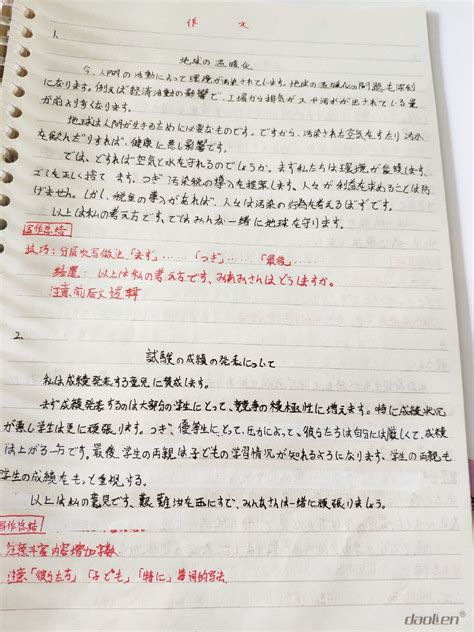 作 文
1.
地球の温暖化
今、人間の活動によって環境が汚染されています。地球の温暖化の問題も深刻
になります。例えば経済活動の影響で、工場から排気ガスや汚水が出されている量
が前より多くなります。
地球は人間が生きるために必要なものです。ですから、汚染された空気をすたり汚水
を飲んだりすれば、健康に悪い影響です。
では、どすれば空気と水を守れるのでしょうか。まず私たちは環境が意識します、
ゴミを正しく捨て ます。つぎ汚染税の導入を提案します。人々が利益を求めることは防
げません。しかし、税金の導入があれば、人々は汚染の行為を考えるはずです。
以上は私の考え方です、ではみんな一緒に地球を守ります。
写作总结
技巧：分层次写做法、「まず」……「つぎ」……「最後」……
结尾： 以上は私の考え方です、みなあさんはどうしますか。
注意前后文逻辑
2.
試験の成績の発表について
私は成績発表する意見に賛成します。
まず成績発表するのは大部分の学生にとって、競争の積極性に増えます。特に成績状況
が悪い学生は更に頑張ります。つぎ、優等生にとって、圧力によって、彼らたちは自分には厳しくて、成績
は上がる一方です。最後、学生の両親は子どもの学習情況が知れるようになります、学生の両親も
学生の成績をもっと重視する。
以上は私の意見です、艱難汝を玉にすで、みんなさんは一緒に頑張りましょう。
写作总结
注意丰富内容增加字数
注意「彼らたち」「子ども」「特に」等词的写法
daollen®